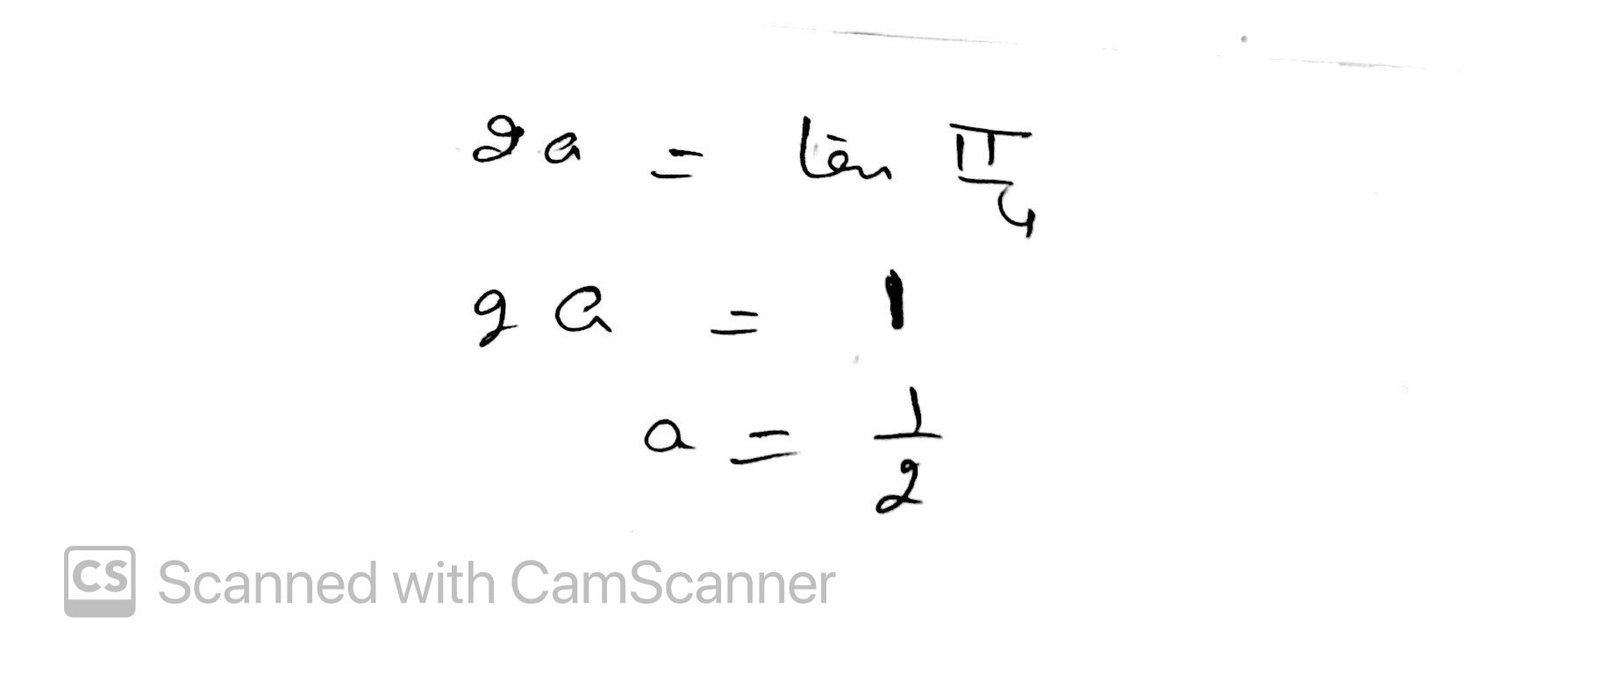 2a = tan π/4
2a = 1
a = 1/2
CS Scanned with CamScanner